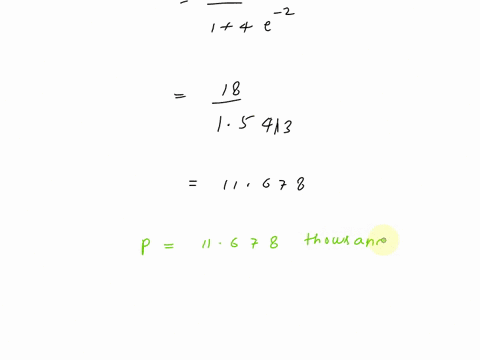 =
1 + 4 e^-2
= 18
1.5413
= 11.678
P = 11.678 thousand